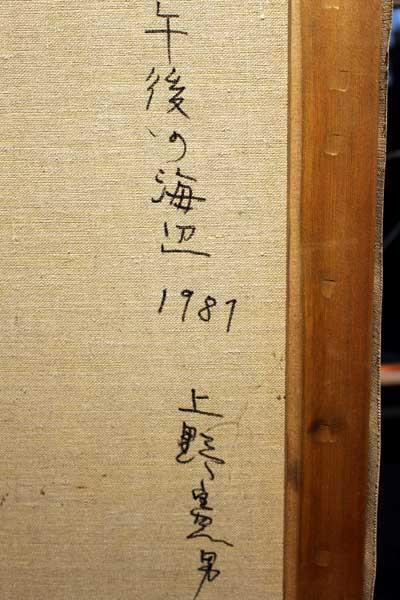 午後の海辺
1987
上野憲男